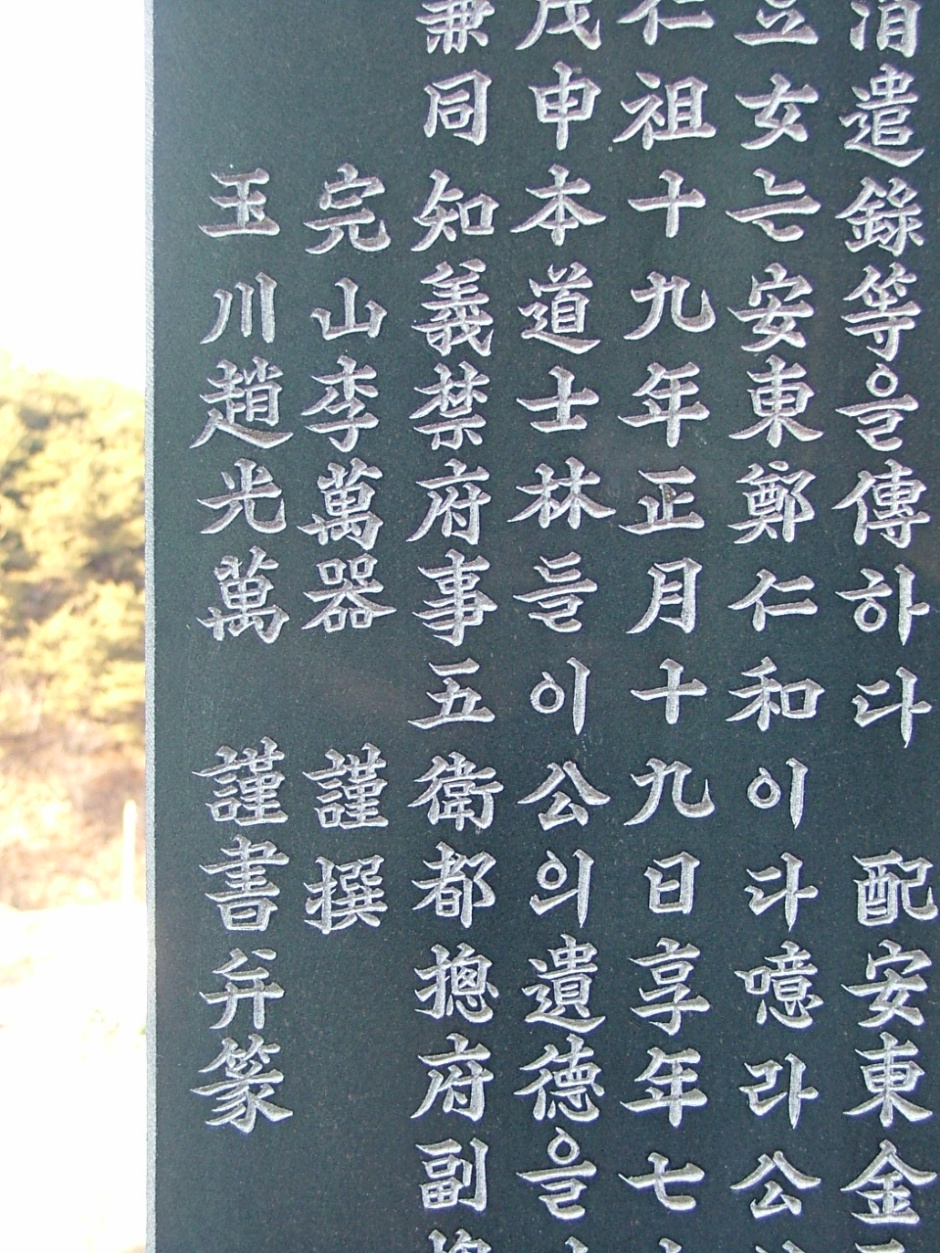 遣錄等을傳하다 配安東金
立女는安東鄭仁和이다噫라公
仁祖十九年正月十九日享年七
戊申本道士林들이公의遺德을
兼同知義禁府事五衛都摠府副
完山李萬器 謹撰
玉川趙光萬 謹書弁篆